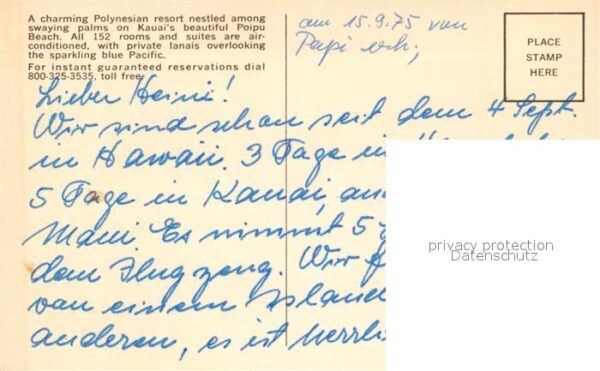 A charming Polynesian resort nestled among
swaying palms on Kauai's beautiful Poipu
Beach. All 152 rooms and suites are air-
conditioned, with private lanais overlooking
the sparkling blue Pacific.
For instant guaranteed reservations dial
800-325-3535, toll free.
am 15.9.75 von
Papi
PLACE
STAMP
HERE
Lieber Heini!
Wir sind schon seit dem 4 Sept.
in Hawaii. 3 Tage in
5 Tage in Kauai,
Maui. Es nimmt 5
dem Flugzeug. Wir
von einem Island
anderen, es ist
privacy protection
Datenschutz